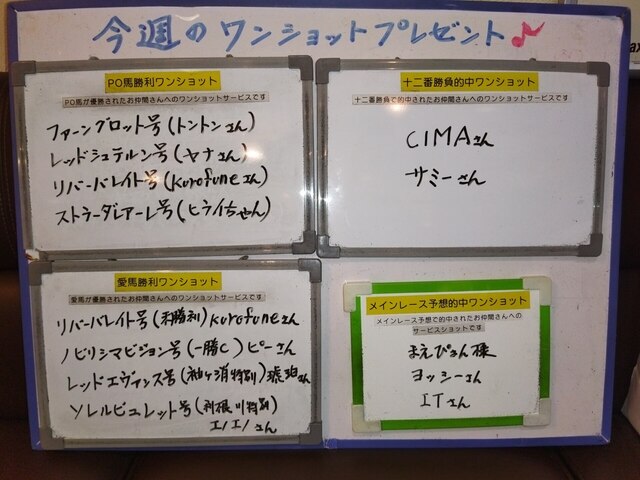 今週のワンショットプレゼント♪
PO馬勝利ワンショット
PO馬が優勝されたお仲間さんへのワンショットサービスです
ファーングロット号(トントンさん)
レッドシュテルン号(ヤナさん)
リバーバレイト号(Kurofuneさん)
ストラーダレアーレ号(ヒライちゃん)
十二番勝負的中ワンショット
十二番勝負で的中されたお仲間さんへのワンショットサービスです
CIMAさん
サミーさん
愛馬勝利ワンショット
愛馬が優勝されたお仲間さんへのワンショットサービスです
リバーバレイト号(未勝利)Kurofuneさん
ノビリシマビジョン号(一勝C)ピーさん
レッドエヴァンス号(袖ヶ浦特別)琥珀さん
ソレルビュレット号(利根川特別)
エノエノさん
メインレース予想的中ワンショット
メインレース予想で的中されたお仲間さんへの
サービスショットです
まえぴょん様
ヨッシーさん
ITさん